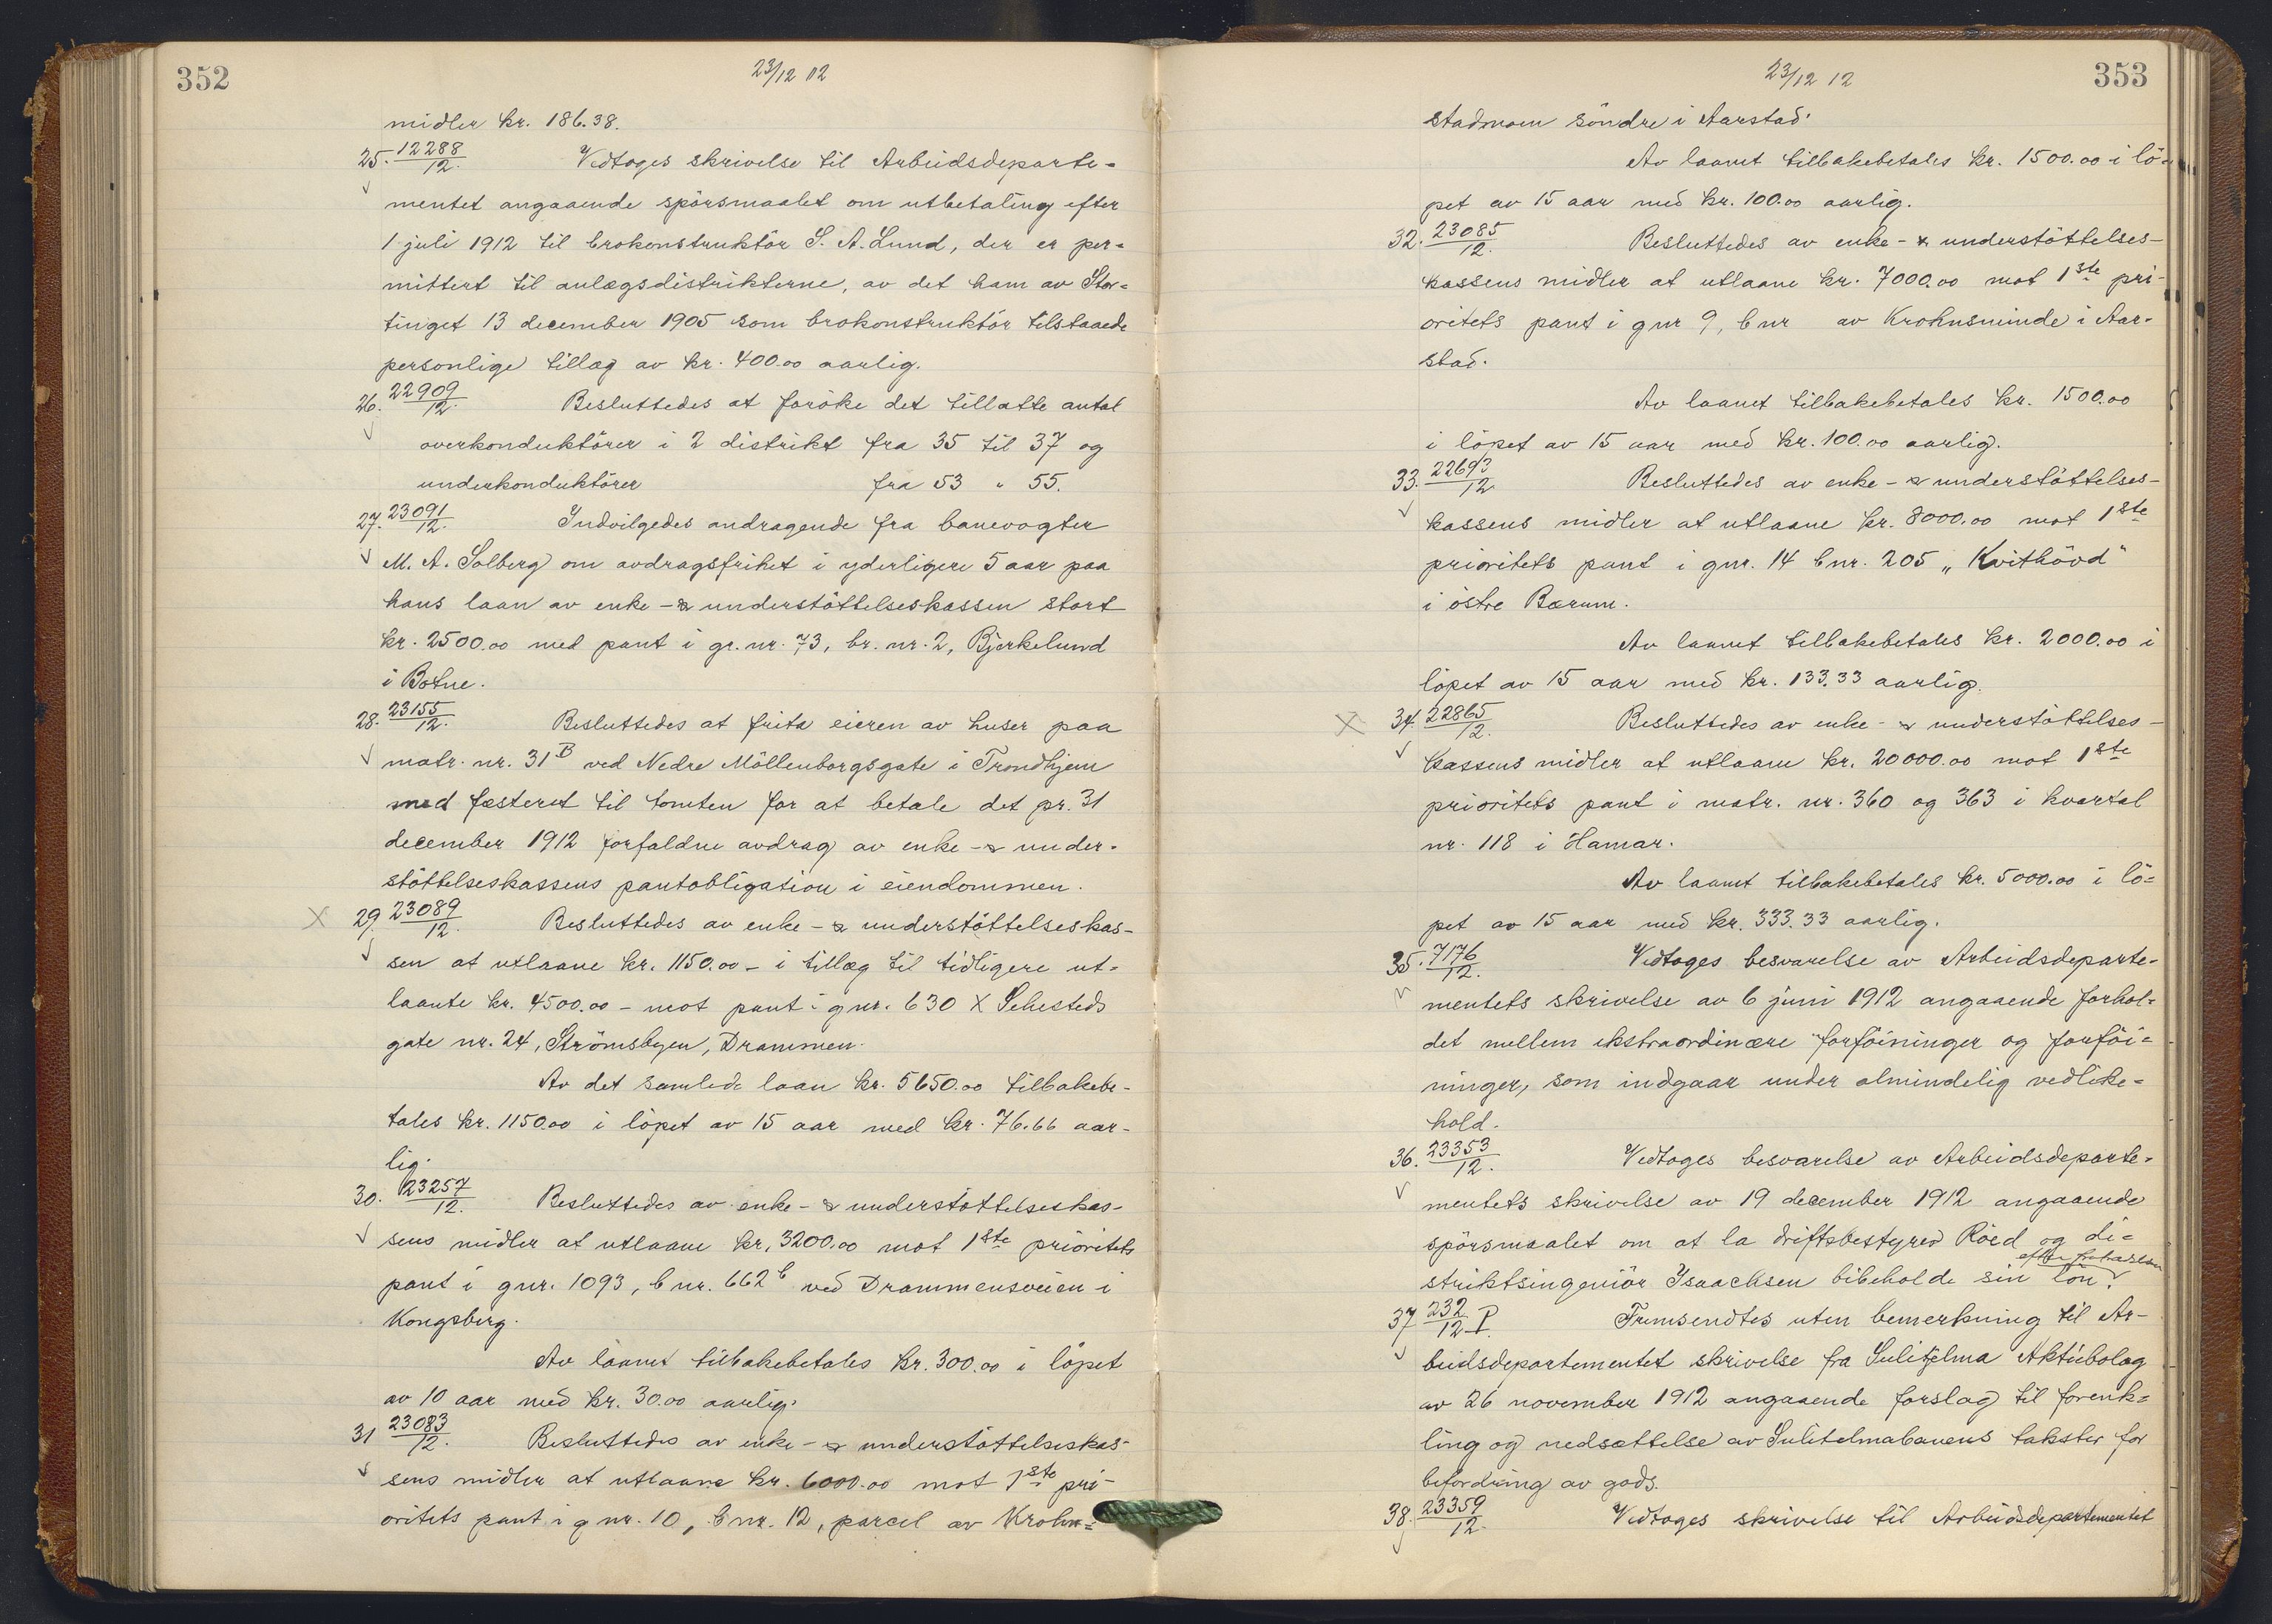 352
23/12 12
midler kr. 186.38.
25. 12288/12. Vedtoges skrivelse til Arbeidsdeparte-
mentet angaaende spörsmaalet om utbetaling efter
1 juli 1912 til brokonstruktör S. A. Lund, der er per-
mittert til anlægsdistrikterne, av det ham av Stor-
tinget 13 december 1905 som brokonstruktör tilstaaede
personlige tillæg av kr. 400.00 aarlig.
26. 22909/12. Besluttedes at foröke det tillatte antal
overkonduktörer i 2 distrikt fra 35 til 37 og
underkonduktörer fra 53 " 55.
27. 23091/12. Indvilgedes andragende fra banevogter
M. A. Solberg om avdragsfrihet i yderligere 5 aar paa
hans laan av enke- & understöttelseskassen stort
kr. 2500.00 med pant i gr. nr. 73, br. nr. 2, Bjerkelund
i Botne.
28. 23155/12. Besluttedes at frita eieren av huser paa
matr. nr. 31 B ved Nedre Möllenborgsgate i Trondhjem
med fæsteret til tomten for at betale det pr. 31
december 1912 forfaldne avdrag av enke- & under-
stöttelseskassens pantobligation i eiendommen.
X 29. 23089/12. Besluttedes av enke- & understöttelseskas-
sen at utlaane kr. 1150.00 - i tillæg til tidligere ut-
laante kr. 4500.00 - mot pant i gnr. 630 X Sehesteds
gate nr. 24, Strömsbyen, Drammen.
Av det samlede laan kr. 5650.00 tilbakebe-
tales kr. 1150.00 i löpet av 15 aar med kr. 76.66 aar-
lig.
30. 23257/12. Besluttedes av enke- & understöttelseskas-
sens midler at utlaane kr. 3200.00 mot 1ste prioritets
pant i gnr. 1093, bnr. 662 b ved Drammensveien i
Kongsberg.
Av laanet tilbakebetales kr. 300.00 i löpet
av 10 aar med kr. 30.00 aarlig.
31 23083/12. Besluttedes av enke- & understöttelseskas-
sens midler at utlaane kr. 6000.00 mot 1ste pri-
oritets pant i gnr. 10, bnr. 12, parcel av Krohn-
353
23/12 12
stadmoen söndre i Aarstad.
Av laanet tilbakebetales kr. 1500.00 i lö-
pet av 15 aar med kr. 100.00 aarlig.
32. 23085/12. Besluttedes av enke- & understöttelses-
kassens midler at utlaane kr. 7000.00 mot 1ste pri-
oritets pant i gnr 9, bnr av Krohnsminde i Aar-
stad.
Av laanet tilbakebetales kr. 1500.00
i löpet av 15 aar med kr. 100.00 aarlig.
33. 22693/12 Besluttedes av enke- & understöttelses-
kassens midler at utlaane kr. 8000.00 mot 1ste
prioritets pant i gnr. 14 bnr. 205 „Kvithövd"
i östre Bærum.
Av laanet tilbakebetales kr. 2000.00 i
löpet av 15 aar med kr. 133.33 aarlig.
X 34. 22865/12. Besluttedes av enke- & understöttelses-
kassens midler at utlaane kr. 20000.00 mot 1ste
prioritets pant i matr. nr. 360 og 363 i kvartal
nr. 118 i Hamar.
Av laanet tilbakebetales kr. 5000.00 i lö-
pet av 15 aar med kr. 333.33 aarlig.
35. 7176/12. Vedtoges besvarelse av Arbeidsdeparte-
mentets skrivelse av 6 juni 1912 angaaende forhol-
det mellem ekstraordinære forföininger og forföi-
ninger, som indgaar under almindelig vedlike-
hold.
36. 23353/12. Vedtoges besvarelse av Arbeidsdeparte-
mentets skrivelse av 19 december 1912 angaaende
spörsmaalet om at la driftsbestyrer Röed og di-
striktsingeniör Isaachsen bibeholde sin lön
37 232/12 P I. Fremsendtes uten bemerkning til Ar-
beidsdepartementet skrivelse fra Sulitjelma Aktiebolag
av 26 november 1912 angaaende forslag til forenk-
ling og nedsættelse av Sulitelmabanens takster for
befordring av gods.
38. 23359/12. Vedtoges skrivelse til Arbeidsdepartementet